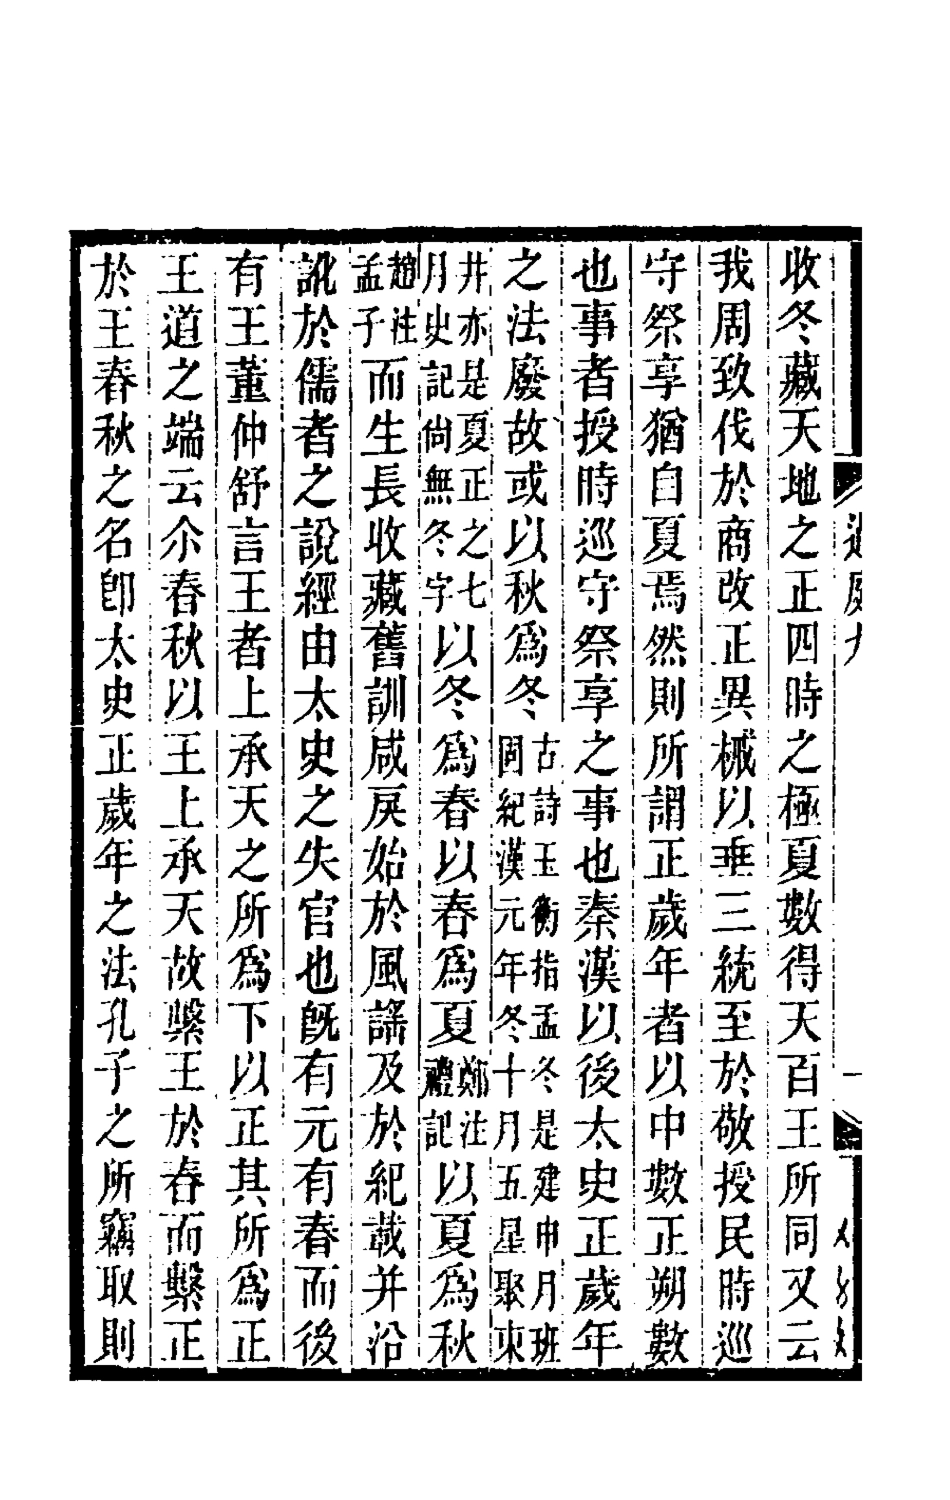 收冬藏天地之正四時之極夏數得天百王所同又云
我周致伐於商改正異械以垂三統至於敬授民時巡
守祭享猶自夏焉然則所謂正歲年者以中數正朔數
也事者授時巡守祭享之事也秦漢以後太史正歲年
之法廢故或以秋爲冬古詩玉衡指孟冬是建申月班固紀漢元年冬十月五星聚東
井亦是夏正之七月史記尙無冬字以冬爲春以春爲夏鄭注禮記以夏爲秋
趙注孟子而生長收藏舊訓咸戾始於風謠及於紀載并沿
訛於儒者之說經由太史之失官也旣有元有春而後
有王董仲舒言王者上承天之所爲下以正其所爲正
王道之端云尒春秋以王上承天故繫王於春而繫正
於王春秋之名卽太史正歲年之法孔子之所竊取則